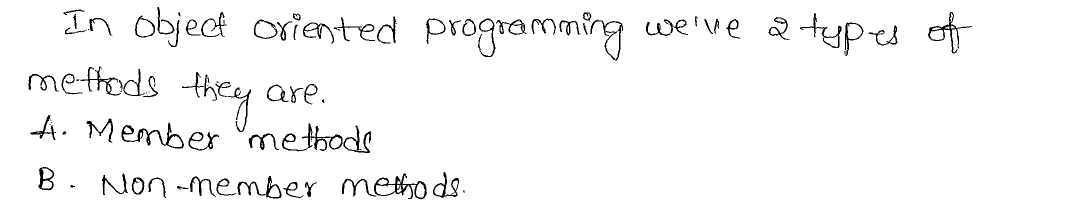 In object oriented programming we've 2 types of
methods they are.
A. Member methods
B. Non-member methods.